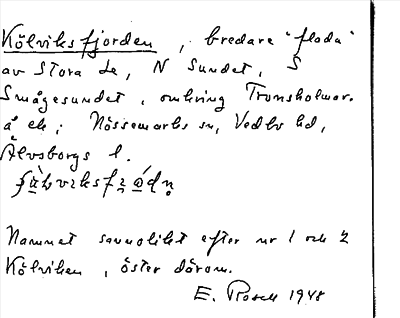 Kölviksfjorden, bredare "floda"
av Stora Le, N Sundet, S
Smågesundet, omkring Tronsholmar.
å ek; Nössemarks sn, Vedbo hd,
Älvsborgs l.
Namnet sannolikt efter nr 1 och 2
Kölviken, öster därom.
E. Rosell 1948